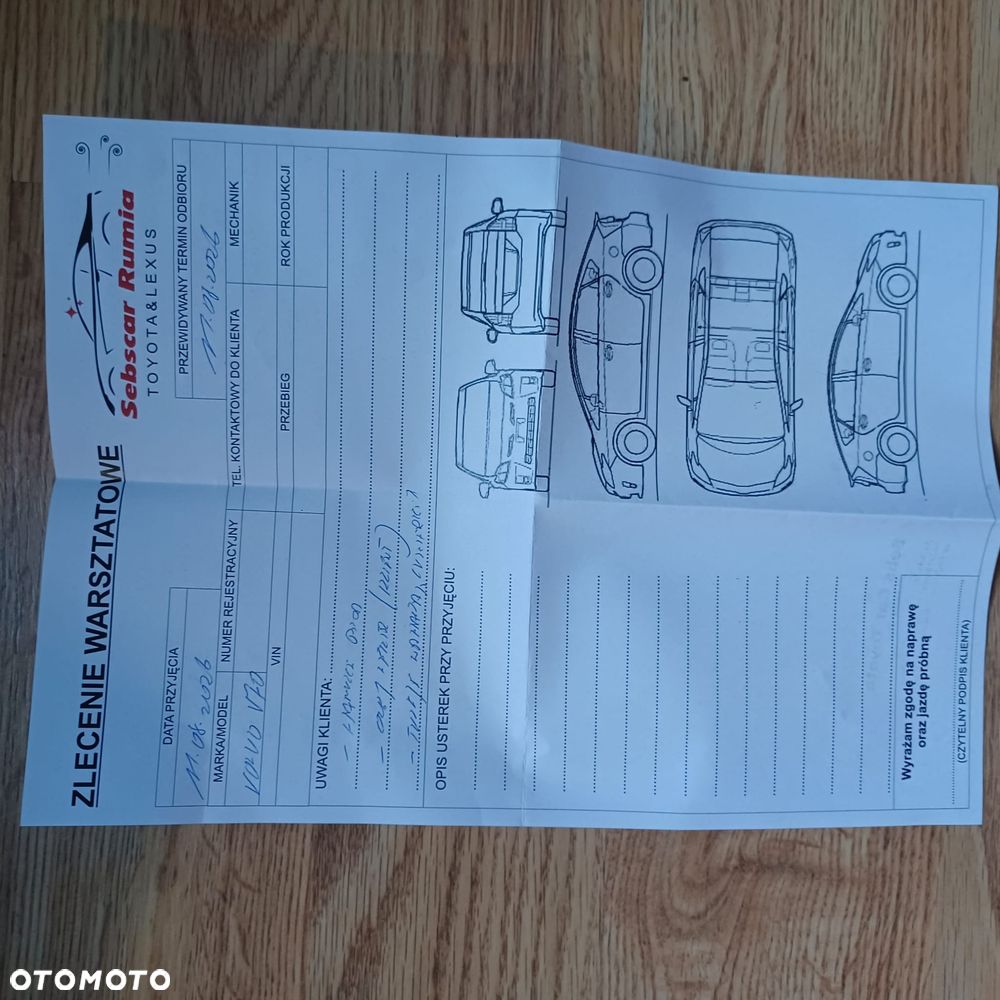 ZLECENIE WARSZTATOWE
Sebscar Rumia
TOYOTA & LEXUS
DATA PRZYJĘCIA
PRZEWIDYWANY TERMIN ODBIORU
11.08.2026
11.08.2026
MARKA/MODEL
NUMER REJESTRACYJNY
TEL. KONTAKTOWY DO KLIENTA
MECHANIK
VOLVO V70
VIN
PRZEBIEG
ROK PRODUKCJI
UWAGI KLIENTA:
OPIS USTEREK PRZY PRZYJĘCIU:
Wyrażam zgodę na naprawę
oraz jazdę próbną
(CZYTELNY PODPIS KLIENTA)
OTOMOTO